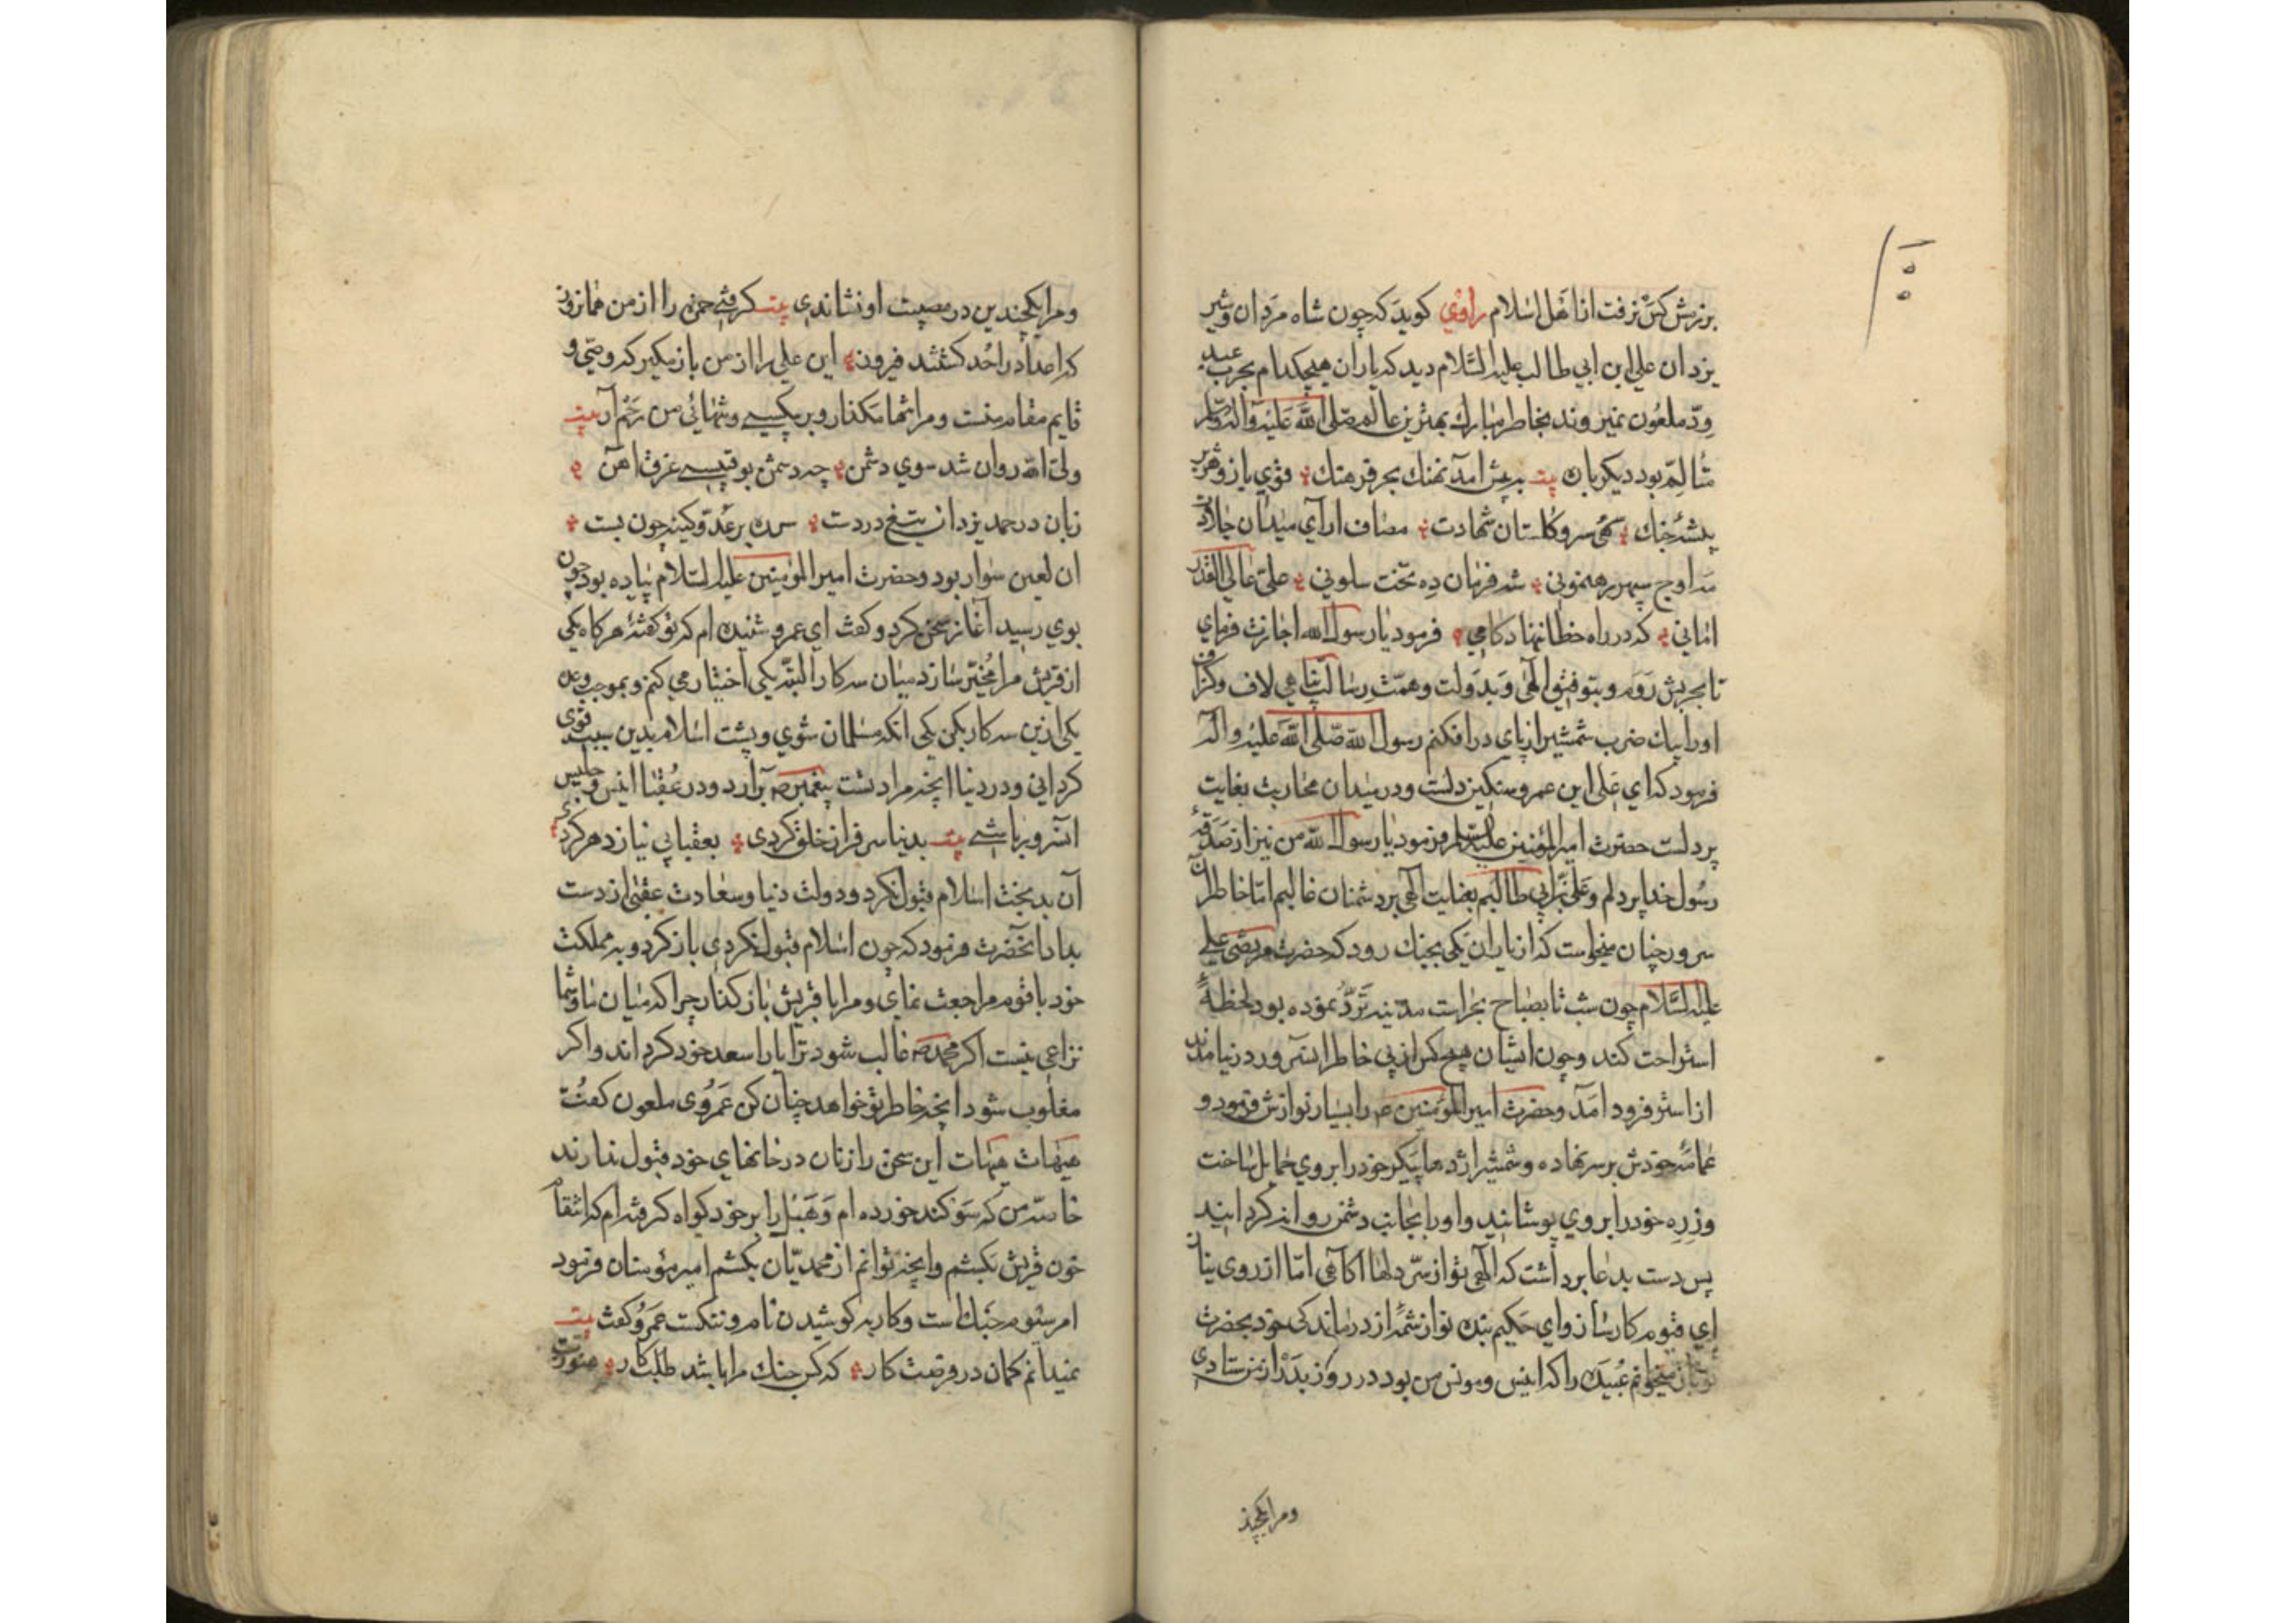 بزرش کس نرفت از اهل اسلام راوی کوید که چون شاه مردان و شیر
یزدان علی ابن ابی طالب علیه السلام دید که یاران هیچکدام بحرب عبد
ود ملعون نمیروند بخاطر مبارك بهترین عالم صلی الله علیه وآله وسلم
متالم بود دیکر باره بیت به پیش آمد نهنك بحر فرهنك قوی بازو هژبر
بیشهٔ جنك سهی سرو کلستان شهادت مصاف ارآی میدان جلادت
مه اوج سپهر رهنمونی شه فرمان ده تخت سلونی علی عالی القدر
امانی که در راه خطا ننهاد کامی فرمود یا رسول الله اجازت فرمای
تا بحربش روم و بتوفیق الهی و بدولت و همت رسالت پناهی لاف و کزاف
او را بیك ضرب شمشیر از پای درافکنم رسول الله صلی الله علیه وآله
فرمود که ای علی این عمرو سنکین دلست و در میدان محاربت بغایت
پر دلست حضرت امیرالمؤمنین علیه السلم فرمود یا رسول الله من نیز از تصدق
رسول خدا پر دلم و علی بن ابی طالبم بعنایت الهی بر دشمنان غالبم امّا خاطر آن
سرور چنان میخواست که از یاران یکی بجنك رود که حضرت مرتضی علی
علیه السلام چون شب تا بصباح بحراست مدینه تردد نموده بود لحظهٔ
استراحت کند و چون ایشان هیچ کس از پی خاطر آنسرور در نیامدند
از استر فرود آمد و حضرت امیرالمؤمنین ع را بسیار نوازش فرمود و
عمامهٔ خودش بر سر نهاده و شمشیر اژدها پیکر خود را بروی حمایل ساخت
و زره خود را بروی پوشانید و او را بجانب دشمن روانه کردانید
پس دست بدعا برداشت که الهی تو از سرّ دلها آکاهی امّا از روی نیاز
ای قیوم کارساز و ای حکیم بنده نواز شمهٔ از درماندکی خود بحضرت
میخوانم عبیده را که انیس و مونس من بود در روز بدر از من ستادی
ومرا بکچند
ومرا بکچندین در مصیبت او نشاندی بیت کرفتی حمزه را از من همانروز
که اعدا در احد کشتند فیروز این علی را از من باز مکیر که وصّی و
قایم مقام منست و مرا تنها مکذار و بر بیکسی و تنهائی من رحم آر بیت
ولیّ الله روان شد سوی دشمن چه دشمن بو قبیسی غرق آهن
زبان در حمد یزدان تیغ در دست سر ره بر عدو کینه جون بست
ان لعین سوار بود و حضرت امیرالمؤمنین علیه السلام پیاده بود چون
بوی رسید آغاز سخن کرد و کفت ای عمرو شنیده ام که تو کفتهٔ هر کاه یکی
از قریش مرا مخیّر سازد میان سه کار البته یکی اختیار می کنم و بموجب وعده
یکی ازین سه کار بکن یکی انکه مسلمان شوی و پشت اسلام بدین سبب قوی
کردانی و در دنیا انچه مرادتست پیغمبر ص برآرد و در عقبا انیس و جلیس
آنسرور باشی بیت بدنیا سرفراز خلق کردی بعقبا بی نیاز دهر کردی
آن بدبخت اسلام قبول نکرد و دولت دنیا و سعادت عقبی از دست
بداد آنحضرت فرمود که چون اسلام قبول نکردی باز کرد و به مملکت
خود با قوم مراجعت نمای و مرا با قریش باز کذار چرا که میان ما و شما
نزاعی نیست اکر محمد ص غالب شود ترا یاراسعد خود کرداند و اکر
مغلوب شود انچه خاطر تو خواهد چنان کن عمروی ملعون کفت
هیهات هیهات این سخن را زنان در خانهای خود قبول ندارند
خاصه من که سوکند خورده ام و هبل را بر خود کواه کرفته ام که انتقام
خون قریش بکشم و انچه توانم از محمدیّان بکشم امیر مؤمنان فرمود
امر سیّوم جنك است و کار به کوشیدن نام و ننکست عمرو کفت بیت
نمیدانم کمان در فرصت کار که کس جنك مرا باشد طلبکار